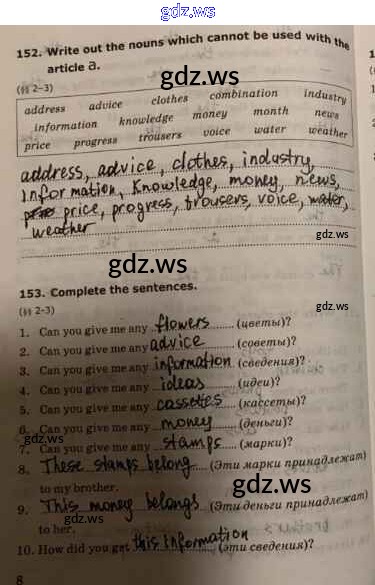 gdz.ws
152. Write out the nouns which cannot be used with the
article a.
(§§ 2-3)
gdz.ws
address advice clothes combination industry
information knowledge money month news
price progress trousers voice water weather
address, advice, clothes, industry,
gdz.ws
Information, Knowledge, money, news,
price, progress, trousers, voice, water,
weather
gdz.ws
gdz.ws
153. Complete the sentences.
(§§ 2-3)
gdz.ws
1. Can you give me any flowers (цветы)?
2. Can you give me any advice (советы)?
3. Can you give me any information (сведения)?
4. Can you give me any ideas (идеи)?
5. Can you give me any cassetes (кассеты)?
6. Can you give me any money (деньги)?
gdz.ws
7. Can you give me any stamps (марки)?
8. These stamps belong (Эти марки принадлежат)
to my brother.
gdz.ws
9. This money belongs (Эти деньги принадлежат)
to her.
gdz.ws
10. How did you get this information (эти сведения)?
8
gdz.ws